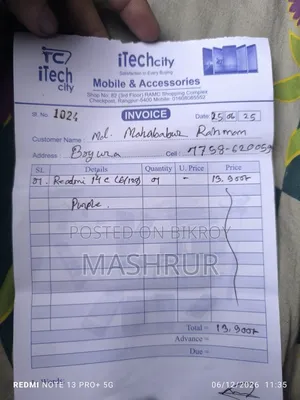 iTech city
iTechcity
Satisfaction in Every Buying
Mobile & Accessories
Shop No. 82 (3rd Floor) RAMC Shopping Complex
Sl. No. 1024
INVOICE
Date: 25 06 25
Customer Name Md. Mahabubur Rahman
Address Bogura
Cell :
SL Details Quantity U. Price Price
01. Redmi 14C (6/128) 01 - 13.900/-
Purple.
POSTED ON BIKROY
MASHRUR
Total = 13.900/-
Advance =
Due =
REDMI NOTE 13 PRO+ 5G
06/12/2026 11:35